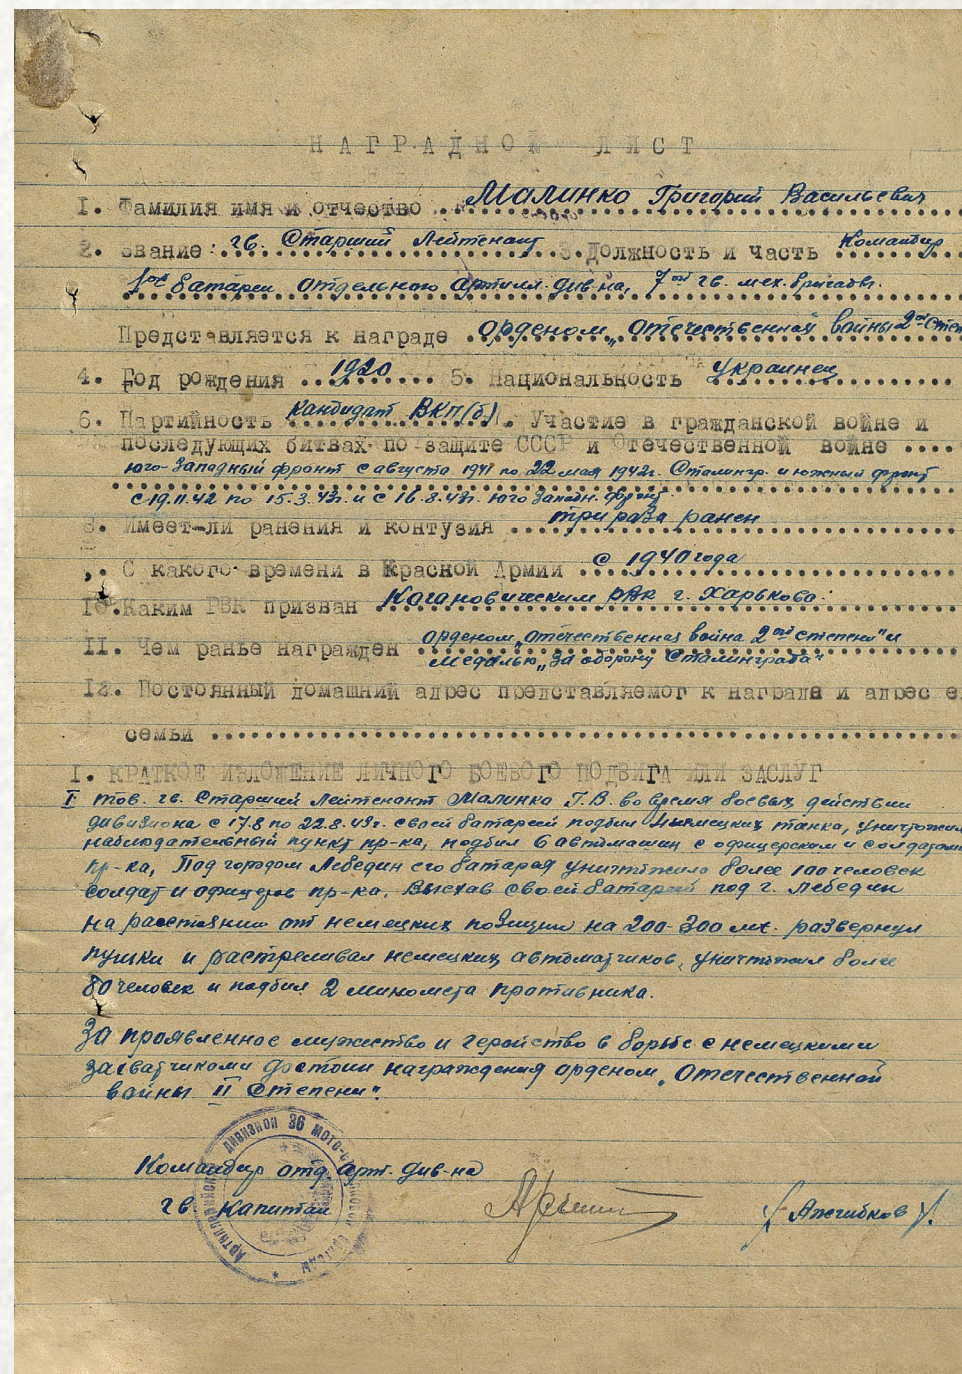 НАГРАДНОЙ ЛИСТ
1. Фамилия имя и отчество ..Малинко Григорий Васильевич
2. Звание: гв. Старший Лейтенант 3. Должность и часть Командир
1ой батареи отдельного Артилл. див-на, 7ой гв. мех. бригады.
Представляется к награде орденом „Отечественной войны 2ой Степ
4. Год рождения 1920 5. Национальность Украинец
6. Партийность Кандидат ВКП(б). Участие в гражданской войне и
последующих битвах по защите СССР и Отечественной войне
юго-Западный фронт с августа 1941 по 22 мая 1942г. Сталингр. и южный фронт
с 19.11.42 по 15.3.43г. и с 16.8.43г. юго Западн. фронт
8. Имеет-ли ранения и контузия три раза ранен
С какого времени в Красной Армии с 1940 года
10. Каким РВК призван Кагановическим РВК г. Харькова.
11. Чем ранье награжден орденом „Отечественная война 2ой степени" и
медалью „За оборону Сталинграда"
12. Постоянный домашний адрес представляемог к награда и адрес е
семьи
I. КРАТКОЕ ИЗЛОЖЕНИЕ ЛИЧНОГО БОЕВОГО ПОДВИГА ИЛИ ЗАСЛУГ
I тов. гв. Старший Лейтенант Малинка Г.В. во время боевых действии
дивизиона с 17.8 по 22.8.43г. своей батареей подбил немецких танка, уничтожил
наблюдательный пункт пр-ка, подбил 6 автомашин с офицерском и солдатами
пр-ка, Под городом Лебедин его батарея уничтожила более 100 человек
солдат и офицеров пр-ка. Выехав своей батареей под г. Лебедин
на расстоянии от немецких позиции на 200-300 мт. развернул
пушки и растреливал немецких автоматчиков, уничтожил более
80 человек и подбил 2 миномета противника.
За проявленное мужество и геройство в борьбе с немецкими
захватчиками достоин награждения орденом „Отечественной
войны II Степени".
Командир отд. арт. див-на
гв. Капитан
АРТИЛЛЕРИЙСКИЙ ДИВИЗИОН 36 МОТО-СТРЕЛКОВОЙ БРИГАДЫ